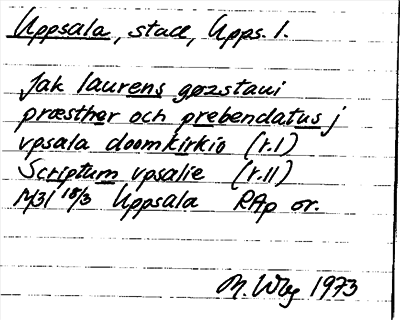 Uppsala, stad, Upps. l.
Jak laurens gøzstaui
præsthor och prebendatus j
vpsala doomkirkio (r.1)
Scriptum vpsalie (r.11)
1431 18/3 Uppsala RAp or.
M. Wbg 1973